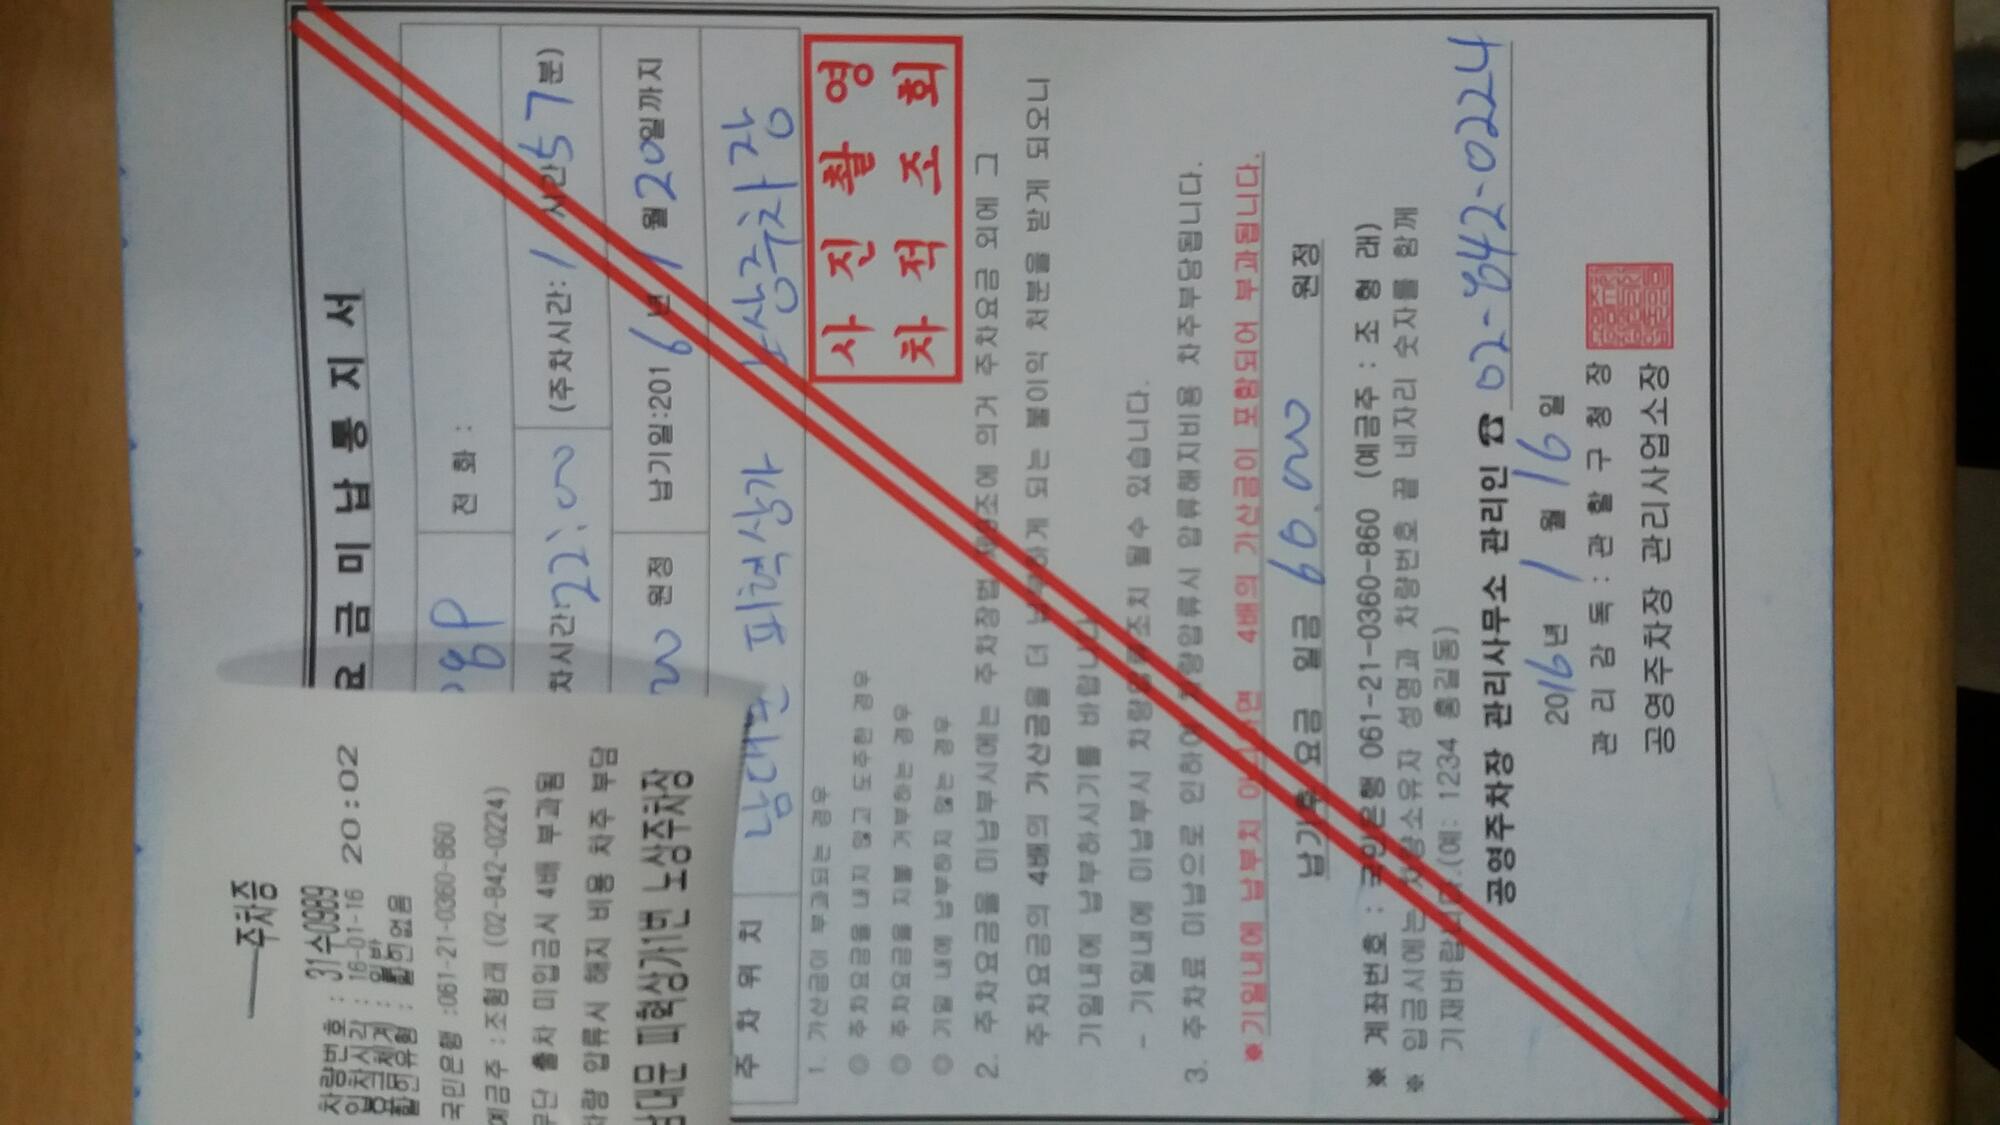 주차증
차량번호 : 31수0989
입차시각 : 16-01-16 20:02
요금체계 : 일반
할인유형 : 할인없음
국민은행 :061-21-0360-860
예금주 : 조형래 (02-842-0224)
무단 출차 미입금시 4배 부과됨
차량 압류시 해지 비용 차주 부담
남대문 피혁상가1번 노상주차장
요 금 미 납 통 지 서
전 화 :
차시간 22:00 (주차시간: 1 시간 57 분)
원정 납기일:2016년 1월 20일까지
주 차 위 치 남대문 피혁상가 노상주차장
사 진 촬 영
차 적 조 회
1. 가산금이 부과되는 경우
◎ 주차요금을 내지 않고 도주한 경우
◎ 주차요금을 지불 거부하는 경우
◎ 기일 내에 납부하지 않는 경우
2. 주차요금을 미납부시에는 주차장법 제9조에 의거 주차요금 외에 그
주차요금의 4배의 가산금을 더 납부하게 되는 불이익 처분을 받게 되오니
기일내에 납부하시기를 바랍니다
- 기일내에 미납부시 차량압류조치 될수 있습니다.
3. 주차료 미납으로 인하여 차량압류시 압류해지비용 차주부담됩니다.
※기일내에 납부치 아니하면 4배의 가산금이 포함되어 부과됩니다.
납기후 요금 일금 60.000 원정
※ 계좌번호 : 국민은행 061-21-0360-860 (예금주 : 조 형 래)
※ 입금시에는 차량소유자 성명과 차량번호 끝 네자리 숫자를 함께
기재바랍니다.(예: 1234 홍길동)
공영주차장 관리사무소 관리인 ☎ 02-842-0224
2016년 1월 16일
관 리 감 독 : 관 할 구 청 장
공영주차장 관리사업소장